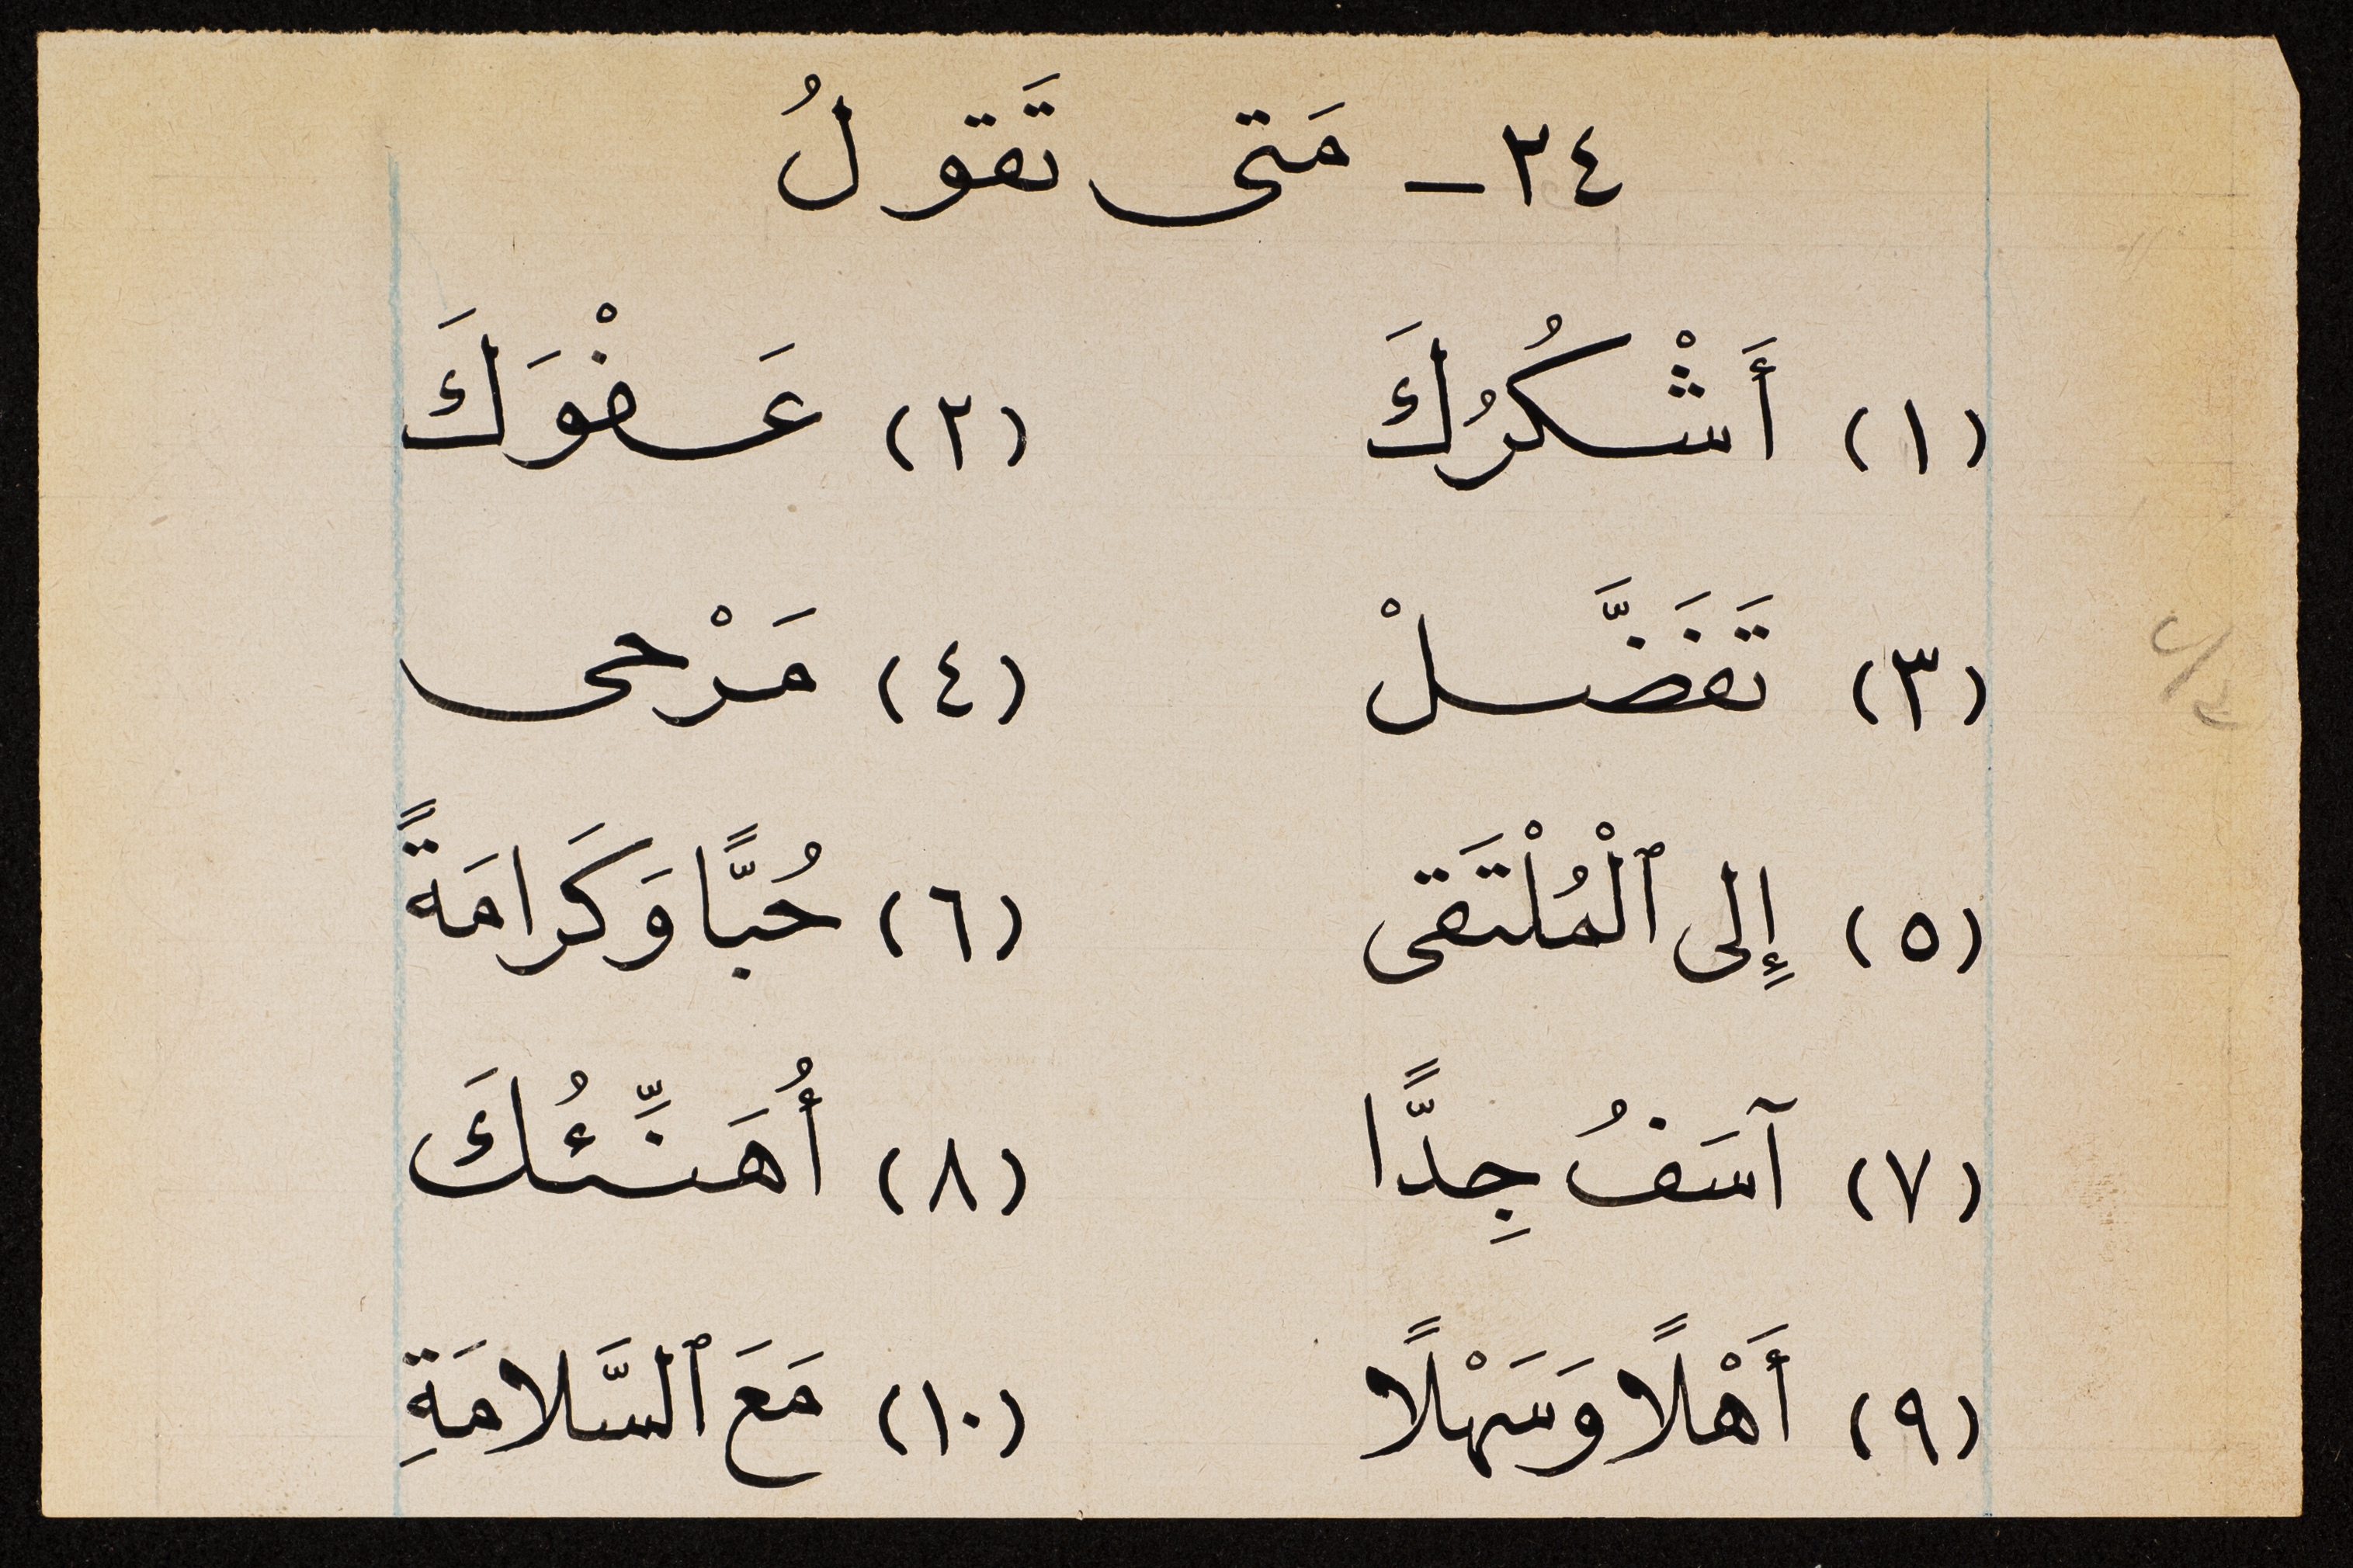 ٢٤ – مَتى تَقولُ
(١) أَشْكُرُكَ (٢) عَفْوَكَ
(٣) تَفَضَّلْ (٤) مَرْحى
(٥) إِلى ٱلْمُلْتَقى (٦) حُبًّا وَكَرامَةً
(٧) آسَفُ جِدًّا (٨) أُهَنِّئُكَ
(٩) أَهْلًا وَسَهْلًا (١٠) مَعَ ٱلسَّلامَةِ